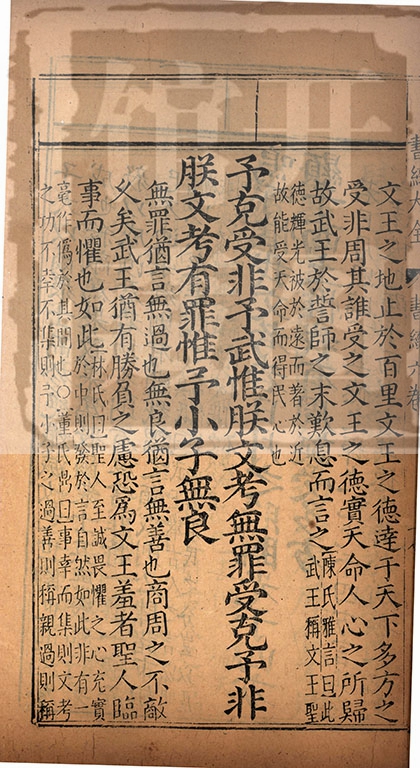 書經大全 書經六卷
文王之地止於百里文王之德達于天下多方之
受非周其誰受之文王之德實天命人心之所歸
故武王於誓師之末歎息而言之陳氏雅言曰此
武王稱文王聖
德輝光被於遠而著於近
故能受天命而得民心也
予克受非予武惟朕文考無罪受克予非
朕文考有罪惟予小子無良
無罪猶言無過也無良猶言無善也商周之不敵
久矣武王猶有勝負之慮恐為文王羞者聖人臨
事而懼也如此林氏曰聖人至誠畏懼之心充實
於中則發於言自然如此非有一
毫作偽於其間也○董氏鼎曰事幸而集則文考
之功不幸不集則予小子之過善則稱親過則稱